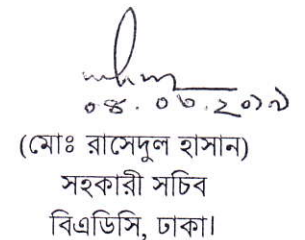 ০৪.০৩.২০১৯
(মোঃ রাসেদুল হাসান)
সহকারী সচিব
বিএডিসি, ঢাকা।